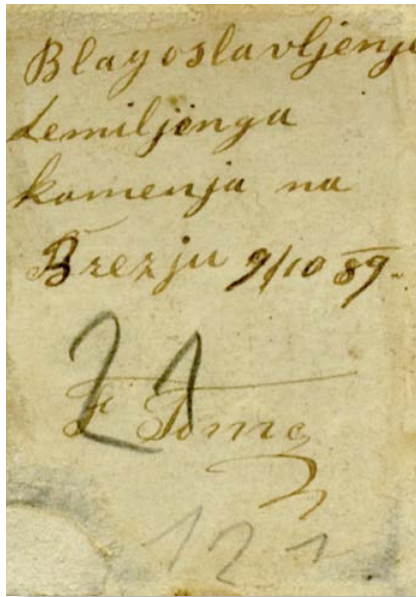 Blagoslavljenje
temiljenga
kamenja na
Brezju 9/10 89.
21
F Tome
121